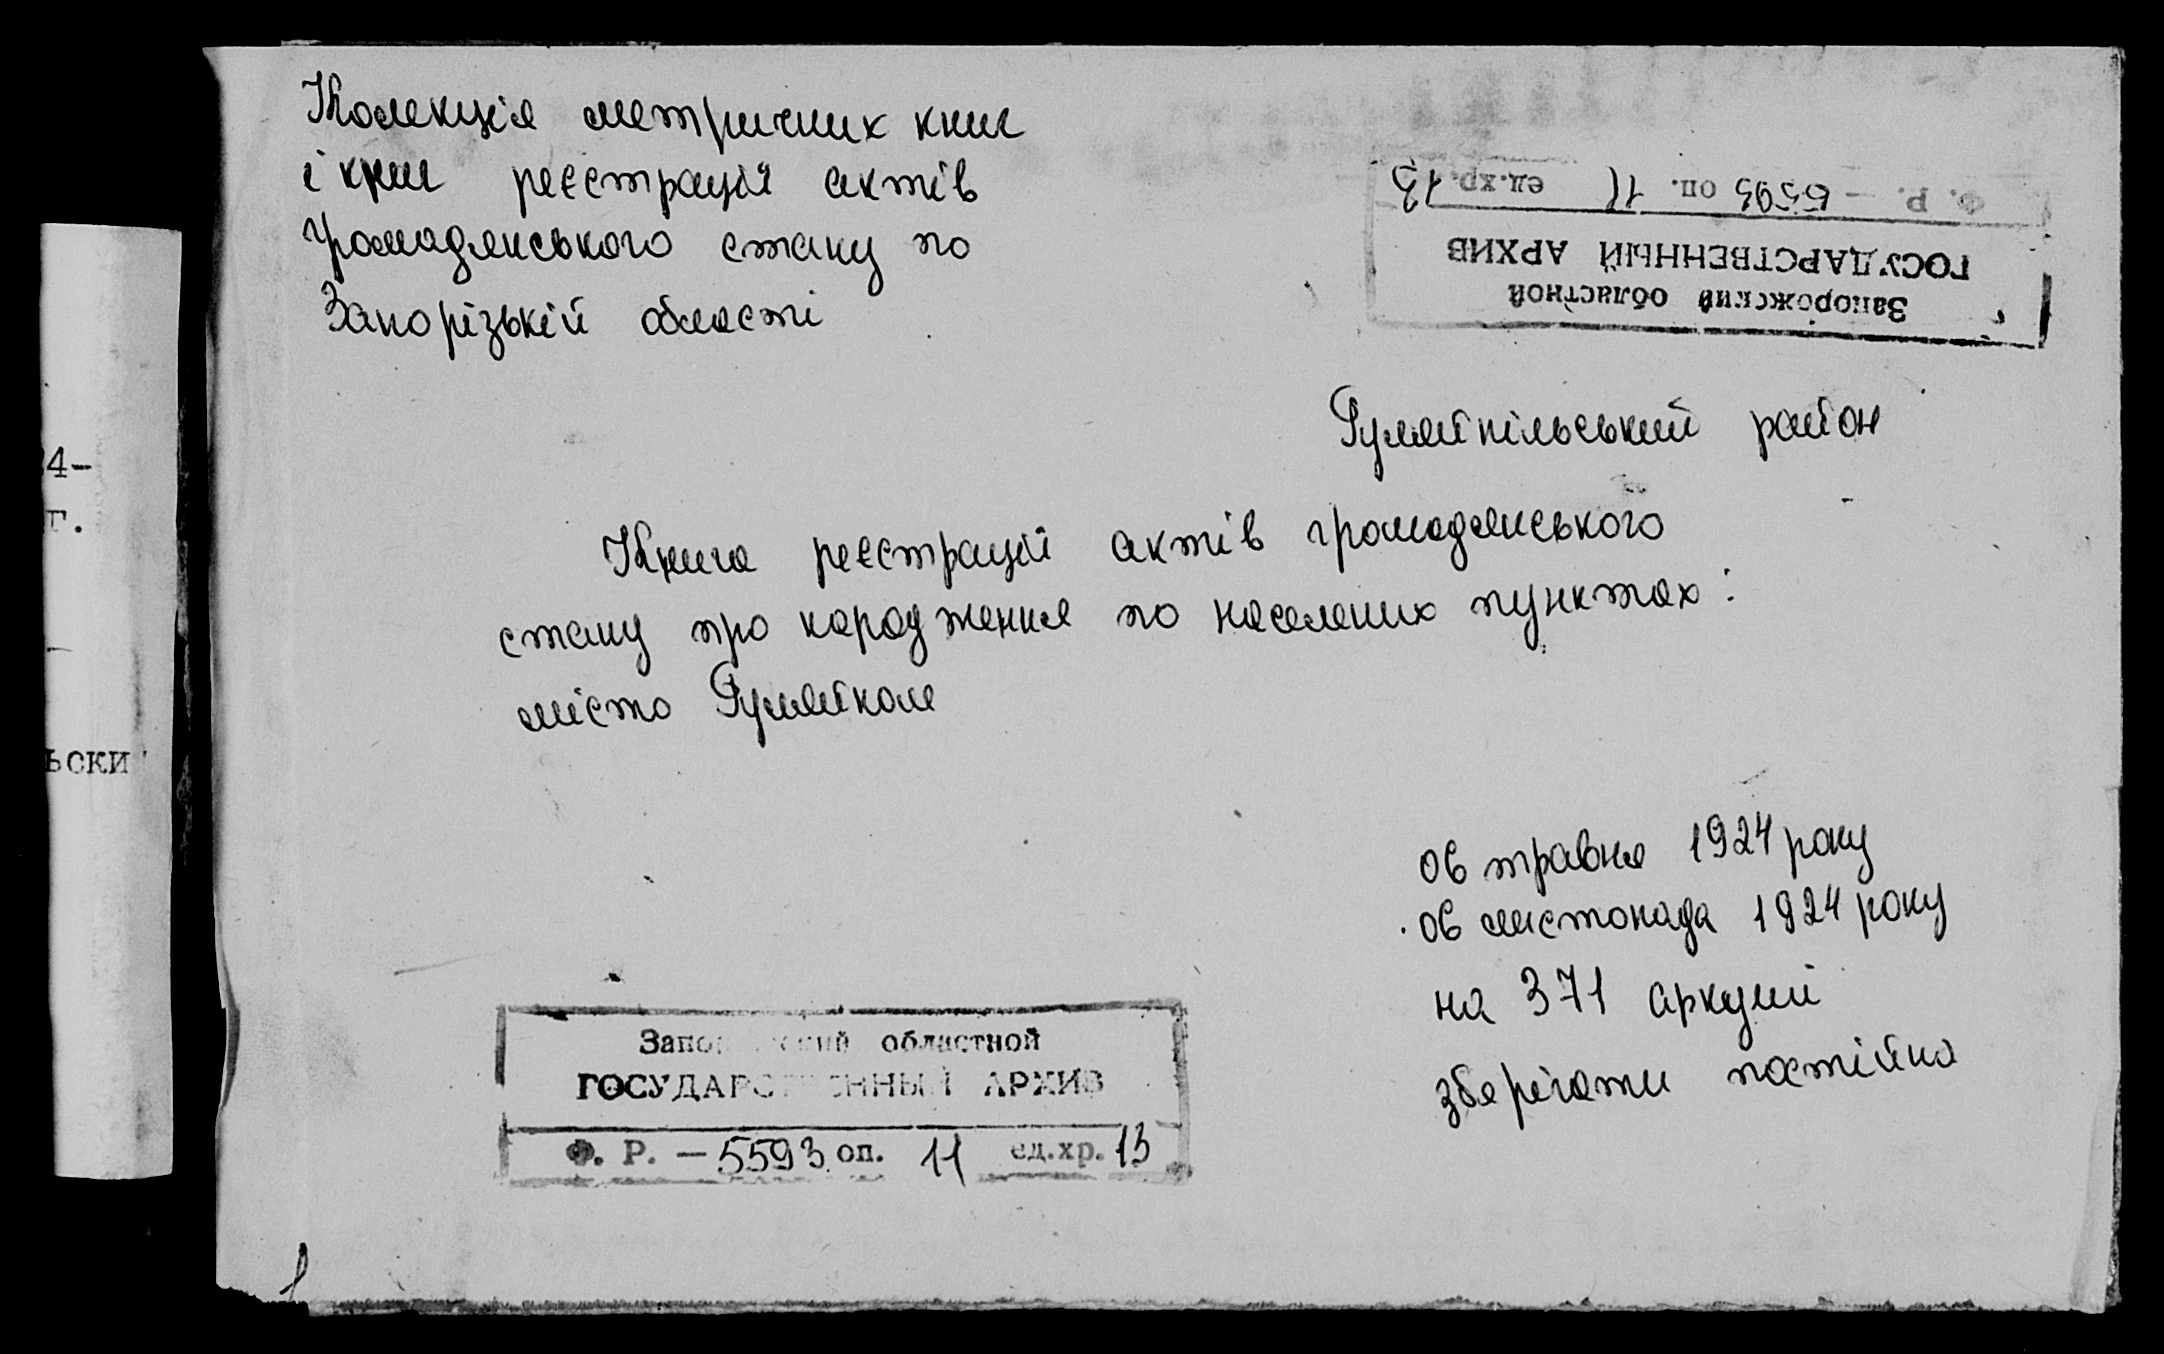 Колекція метричних книг
і книг реєстрації актів
громадянського стану по
Запорізькій області
Запорожский областной
ГОСУДАРСТВЕННЫЙ АРХИВ
Ф. Р. — 5593 оп. 11 ед.хр. 13
Гуляйпільський район
4-
г.
Книга реєстрації актів громадянського
стану про народження по населених пунктах:
місто Гуляйполе
ьски
06 травня 1924 року
06 листопада 1924 року
на 371 аркуші
зберігати постійно
Запорожский областной
ГОСУДАРСТВЕННЫЙ АРХИВ
Ф. Р. — 5593 оп. 11 ед.хр. 13